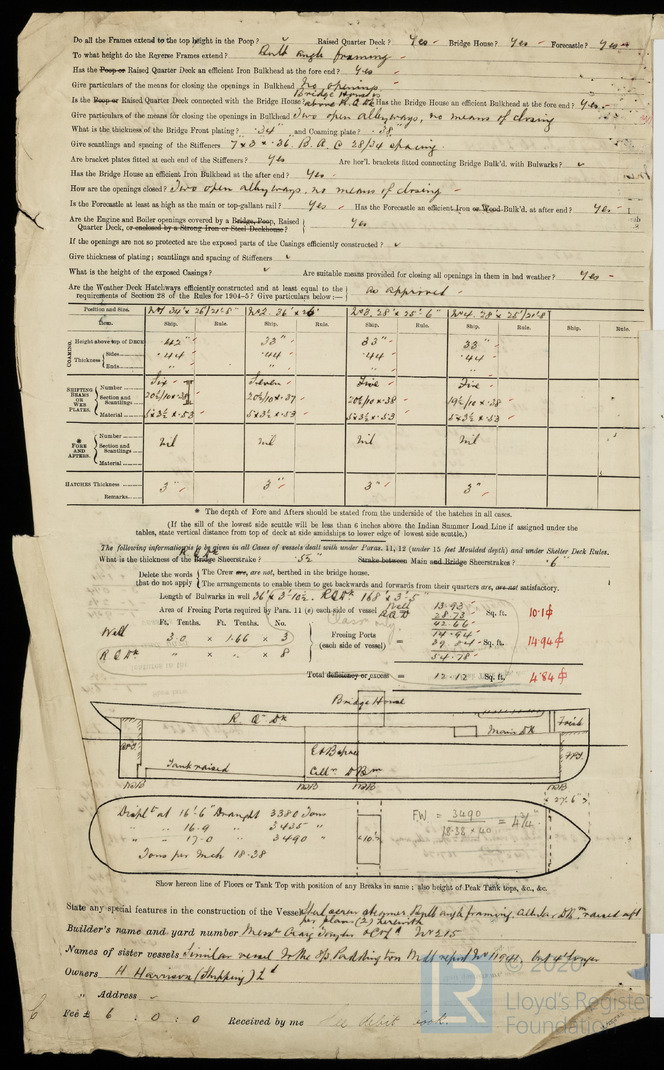 Do all the Frames extend to the top height in the Poop? ✓ Raised Quarter Deck? Yes Bridge House? Yes Forecastle? Yes
To what height do the Reverse Frames extend? Bulb angle framing
Has the Poop or Raised Quarter Deck an efficient Iron Bulkhead at the fore end? Yes
Give particulars of the means for closing the openings in Bulkhead No openings
Is the Poop or Raised Quarter Deck connected with the Bridge House? Bridge House is above R.Q.Dk Has the Bridge House an efficient Bulkhead at the fore end? Yes
Give particulars of the means for closing the openings in Bulkhead Two open alleyways, no means of closing
What is the thickness of the Bridge Front plating? .34" and Coaming plate? .38"
Give scantlings and spacing of the Stiffeners 7 x 3 x .36 B.A. @ 28/34 spacing
Are bracket plates fitted at each end of the Stiffeners? Yes Are hor'l. brackets fitted connecting Bridge Bulk'd. with Bulwarks? ✓
Has the Bridge House an efficient Iron Bulkhead at the after end? Yes
How are the openings closed? Two open alleyways. no means of closing
Is the Forecastle at least as high as the main or top-gallant rail? Yes Has the Forecastle an efficient Iron or Wood Bulk'd. at after end? Yes
Are the Engine and Boiler openings covered by a Bridge, Poop, Raised
Quarter Deck, or enclosed by a Strong Iron or Steel Deckhouse? Yes
If the openings are not so protected are the exposed parts of the Casings efficiently constructed? ✓
Give thickness of plating; scantlings and spacing of Stiffeners ✓
What is the height of the exposed Casings? ✓ Are suitable means provided for closing all openings in them in bad weather? Yes
Are the Weather Deck Hatchways efficiently constructed and at least equal to the
requirements of Section 28 of the Rules for 1904-5? Give particulars below:— As approved
Position and Size. No1 34' x 26'/21'8" No2. 36' x 26' No3. 28' x 25'.6" No4. 28' x 25'/21'.8
Item. Ship. Rule. Ship. Rule. Ship. Rule. Ship. Rule. Ship. Rule.
COAMING. Height above top of DECK 42" 33" 33" 33"
Thickness Sides .44 .44 .44 .44
Ends " " " "
SHIFTING BEAMS OR WEB PLATES. Number Six Seven Five Five
Section and Scantlings 20½/10 x .38 20½/10 x .37 20½/10 x .38 19½/10 x .38
Material 5 x 3½ x .53 5 x 3½ x .53 5 x 3½ x .53 5 x 3½ x .53
* FORE AND AFTERS. Number
Section and Scantlings Nil Nil Nil Nil
Material
HATCHES Thickness 3" 3" 3" 3"
Remarks
* The depth of Fore and Afters should be stated from the underside of the hatches in all cases.
(If the sill of the lowest side scuttle will be less than 6 inches above the Indian Summer Load Line if assigned under the
tables, state vertical distance from top of deck at side amidships to lower edge of lowest side scuttle.)
The following information is to be given in all Cases of vessels dealt with under Paras. 11, 12 (under 15 feet Moulded depth) and under Shelter Deck Rules.
What is the thickness of the Bridge Sheerstrake? R.Q.Dk .52" Strake between Main and Bridge Sheerstrakes? .6"
Delete the words that do not apply The Crew are, are not, berthed in the bridge house.
The arrangements to enable them to get backwards and forwards from their quarters are, are not satisfactory.
Length of Bulwarks in well 36' x 3'.10½. R.Q.Dk. 168' x 3'.5"
Area of Freeing Ports required by Para. 11 (e) each side of vessel Well 13.93 R.Q.D 28.73 Sq. ft. 10.1
42.66
Ft. Tenths. Ft. Tenths. No.
Well 3.0 x 1.66 x 3
R.Q.Dk. " x " x 8
Freeing Ports (each side of vessel) = 14.94 39.84 Sq. ft. 14.94
54.78
Total deficiency or excess = 12.12 Sq. ft. 4.84
Bridge House
R. Q. Dk
Main Dk
Fo'csle
A.P.T.
Tank raised
E & B space
Cell. D.Bm
F.P.T.
WTB WTB WTB WTB
27'.6"
Displt at 16'.6" Draught 3380 Tons
" " 16.9 " 3435 "
" " 17.0 " 3490 "
Tons per Inch 18.38
10½
FW = 3490 / 18.38 x 40 = 4¾"
Show hereon line of Floors or Tank Top with position of any Breaks in same; also height of Peak Tank tops, &c., &c.
State any special features in the construction of the Vessel Steel screw steamer Bulb angle framing. Cellular D.Bm. raised aft
per plans (2) herewith
Builder's name and yard number Messrs Craig Taylor & Co Ld No 215
Names of sister vessels Similar vessel to the S/s Paddington Mdb report No 11941, but 4' longer
Owners H. Harrison (Shipping) Ld
" Address ✓
Fee £ 6 : 0 : 0 Received by me See debit book.
LR
© 2020
Lloyd's Register
Foundation